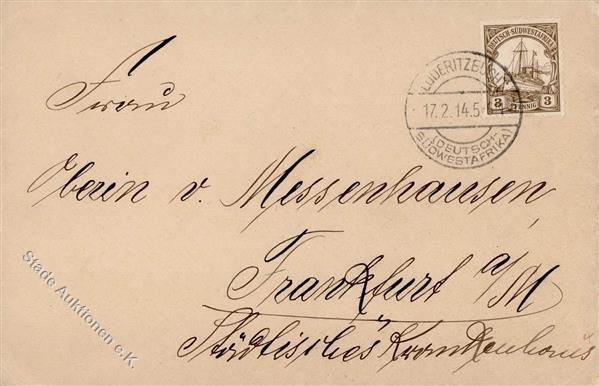 DEUTSCH-SÜDWESTAFRIKA
3 PFENNIG 3
LÜDERITZBUCHT
17.2.14.5-
(DEUTSCH-
SÜDWESTAFRIKA)
Frau
v. Messenhausen,
Frankfurt a/M
Städtisches Krankenhaus
Stade Auktionen e.K.